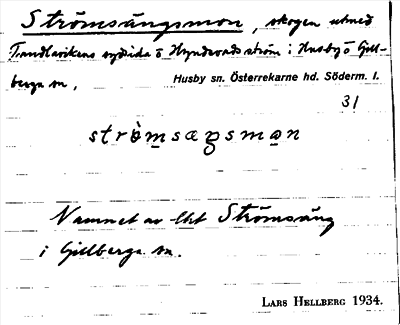 Strömsängsmon, skogen utmed
Trandlavikens sydsida ö Hyndevads ström i Husby o Gill-
berga sn,
Husby sn. Österrekarne hd. Söderm. l.
31
strömsæŋsmon
Namnet av lht Strömsäng
i Gillberga sn.
LARS HELLBERG 1934.